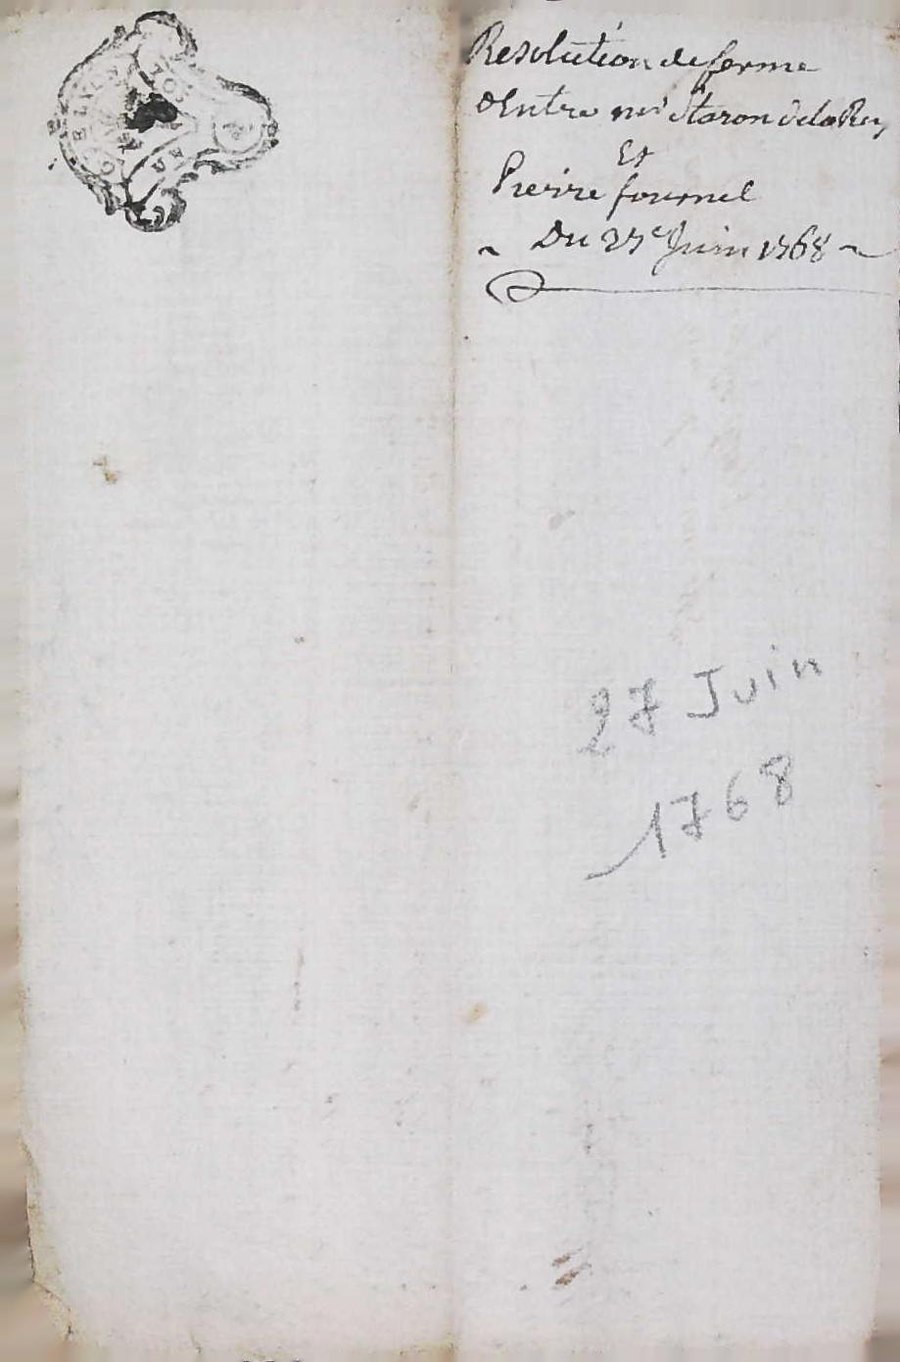 Resolution de ferme
dentre mr Staron delaRey
Et
Pierre fournel
Du 27e Juin 1768
27 Juin
1768